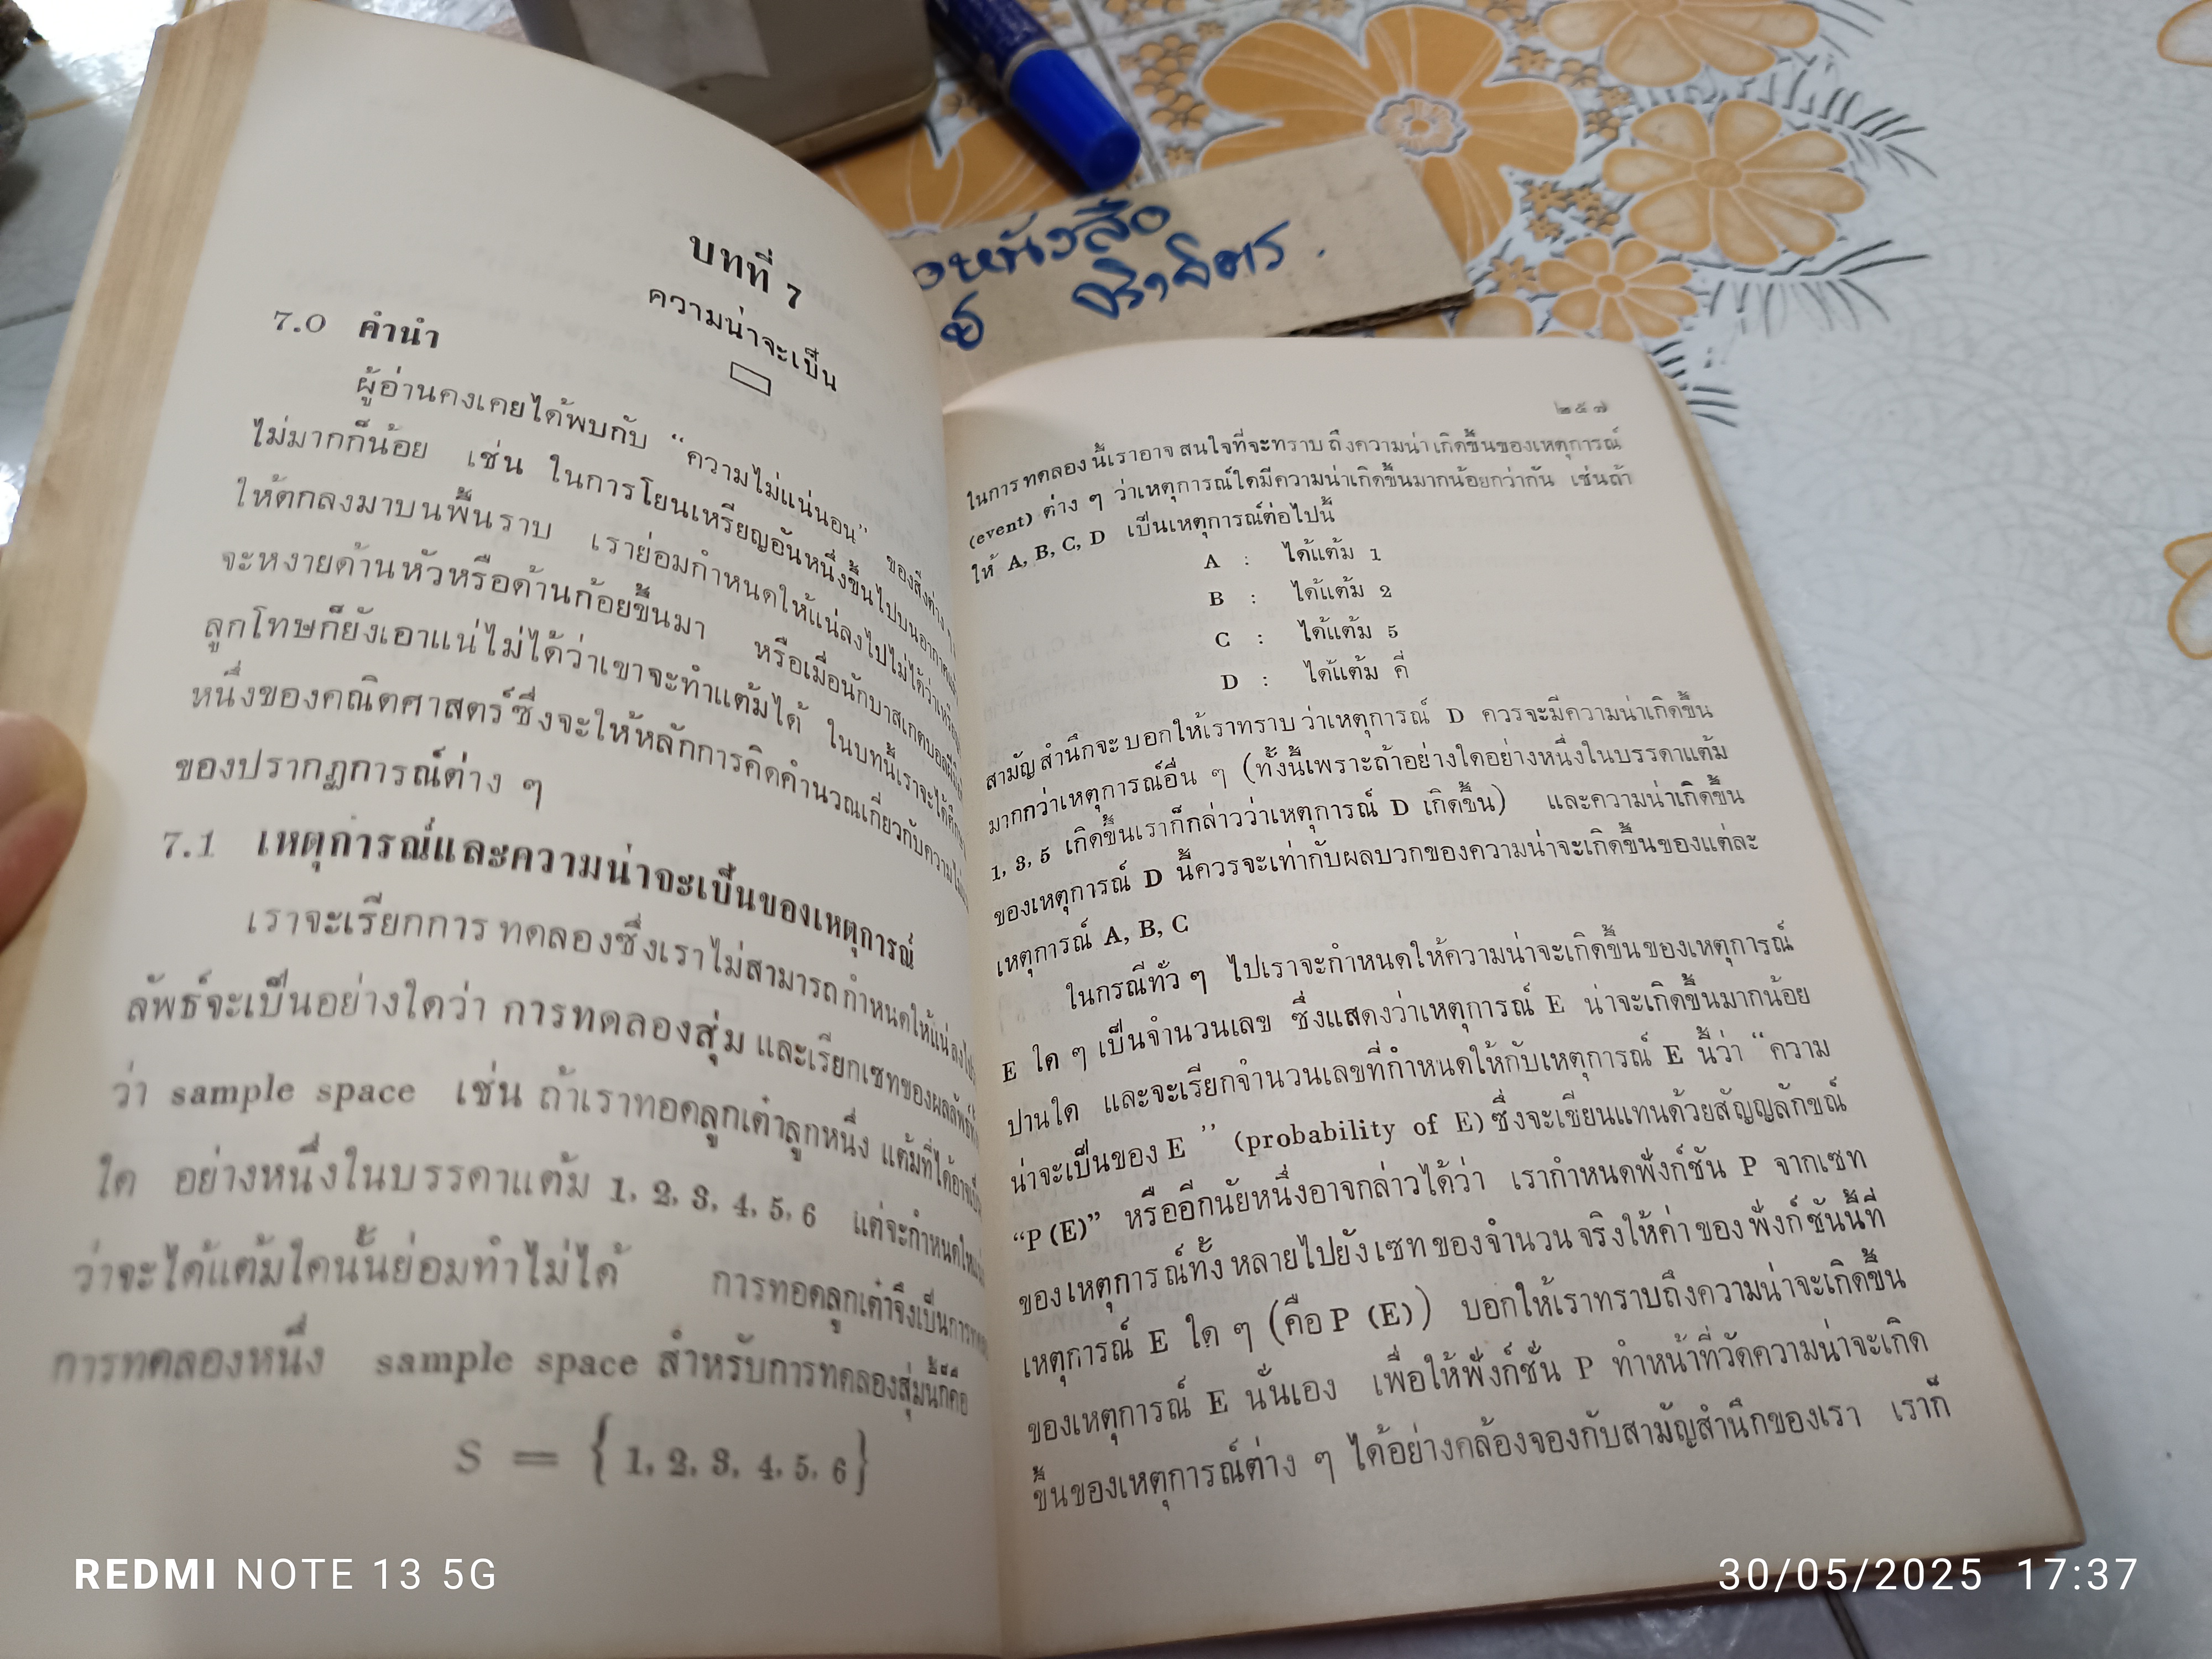 บทที่ 7
ความน่าจะเป็น
7.0 คำนำ
ผู้อ่านคงเคยได้พบกับ “ความไม่แน่นอน” ของสิ่งต่าง
ไม่มากก็น้อย เช่น ในการโยนเหรียญอันหนึ่งขึ้นไปบนอากาศแล้ว
ให้ตกลงมาบนพื้นราบ เราย่อมกำหนดให้แน่ลงไปไม่ได้ว่าเหรียญ
จะหงายด้านหัวหรือด้านก้อยขึ้นมา หรือเมื่อนักบาสเกตบอล
ลูกโทษก็ยังเอาแน่ไม่ได้ว่าเขาจะทำแต้มได้ ในบทนี้เราจะได้ศึกษา
หนึ่งของคณิตศาสตร์ซึ่งจะให้หลักการคิดคำนวณเกี่ยวกับความ
ของปรากฏการณ์ต่าง ๆ
7.1 เหตุการณ์และความน่าจะเป็นของเหตุการณ์
เราจะเรียกการทดลองซึ่งเราไม่สามารถกำหนดให้แน่ลงไป
ลัพธ์จะเป็นอย่างใดว่า การทดลองสุ่ม และเรียกเซทของผลลัพธ์
ว่า sample space เช่น ถ้าเราทอดลูกเต๋าลูกหนึ่ง แต้มที่ได้อาจเป็น
ใด อย่างหนึ่งในบรรดาแต้ม 1, 2, 3, 4, 5, 6 แต่จะกำหนดให้แน่
ว่าจะได้แต้มใดนั้นย่อมทำไม่ได้ การทอดลูกเต๋าจึงเป็นการ
การทดลองหนึ่ง sample space สำหรับการทดลองสุ่มนี้ก็คือ
S = { 1, 2, 3, 4, 5, 6 }
๒๕๗
ในการทดลองนี้เราอาจสนใจที่จะทราบถึงความน่าเกิดขึ้นของเหตุการณ์
(event) ต่าง ๆ ว่าเหตุการณ์ใดมีความน่าเกิดขึ้นมากน้อยกว่ากัน เช่นถ้า
ให้ A, B, C, D เป็นเหตุการณ์ต่อไปนี้
A : ได้แต้ม 1
B : ได้แต้ม 2
C : ได้แต้ม 5
D : ได้แต้ม คี่
สามัญสำนึกจะบอกให้เราทราบว่าเหตุการณ์ D ควรจะมีความน่าเกิดขึ้น
มากกว่าเหตุการณ์อื่น ๆ (ทั้งนี้เพราะถ้าอย่างใดอย่างหนึ่งในบรรดาแต้ม
1, 3, 5 เกิดขึ้นเราก็กล่าวว่าเหตุการณ์ D เกิดขึ้น) และความน่าเกิดขึ้น
ของเหตุการณ์ D นี้ควรจะเท่ากับผลบวกของความน่าจะเกิดขึ้นของแต่ละ
เหตุการณ์ A, B, C
ในกรณีทั่ว ๆ ไปเราจะกำหนดให้ความน่าจะเกิดขึ้นของเหตุการณ์
E ใด ๆ เป็นจำนวนเลข ซึ่งแสดงว่าเหตุการณ์ E น่าจะเกิดขึ้นมากน้อย
ปานใด และจะเรียกจำนวนเลขที่กำหนดให้กับเหตุการณ์ E นี้ว่า “ความ
น่าจะเป็นของ E ” (probability of E) ซึ่งจะเขียนแทนด้วยสัญญลักขณ์
“P (E)” หรืออีกนัยหนึ่งอาจกล่าวได้ว่า เรากำหนดฟังก์ชัน P จากเซท
ของเหตุการณ์ทั้งหลายไปยังเซทของจำนวนจริงให้ค่าของฟังก์ชันนี้ที่
เหตุการณ์ E ใด ๆ (คือ P (E)) บอกให้เราทราบถึงความน่าจะเกิดขึ้น
ของเหตุการณ์ E นั่นเอง เพื่อให้ฟังก์ชั่น P ทำหน้าที่วัดความน่าจะเกิด
ขึ้นของเหตุการณ์ต่าง ๆ ได้อย่างคล้องจองกับสามัญสำนึกของเรา เราก็
REDMI NOTE 13 5G
30/05/2025 17:37